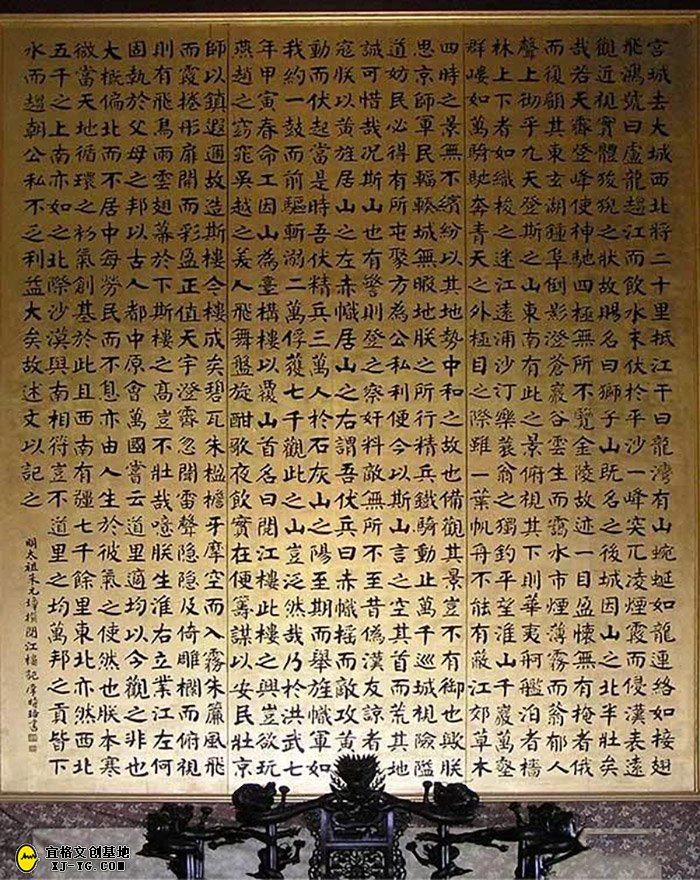 宫城去大城西北將二十里抵江干曰龍灣有山蜿蜒如龍連絡如接翅
飛鴻號曰盧龍趨江而飲水末伏於平沙一峰突兀凌煙霞而侵漢表遠
觀近視實體狻猊之狀故賜名曰獅子山既名之後城因山之北半壯矣
哉若天霽登峰使神馳四極無所不覽金陵故迹一目盈懷無有掩者俄
而復顧其東玄湖鍾阜倒影澄蒼巖谷雲生而靄水市煙薄霧而蓊郁人
聲上徹乎九天登斯之山東南有此之景俯視其下則華夷舸艦泊者檣
林上下者如織梭之迷江遠浦沙汀樂蓑翁之獨釣平望淮山千巖萬壑
群嶁如萬騎馳奔青天之外極目之際雖一葉帆舟不能有蔽江郊草木
四時之景無不繽紛以其地勢中和之故也備觀其景豈不有御也歟朕
思京師軍民輻輳城無暇地朕之所行精兵鐵騎動止萬千巡城視險隘
道妨民必得有所屯聚方為公私利便今以斯山言之空其首而荒其地
誠可惜哉况斯山也有警則登之察奸料敵無所不至昔偽漢友諒者
寇朕以黄旌居山之左赤幟居山之右謂吾伏兵曰赤幟摇而敵攻黄
動而伏起當是時吾伏精兵三萬人於石灰山之陽至期而舉旌幟軍如
我約一鼓而前驅斬溺二萬俘獲七千觀此之山豈泛然哉乃於洪武七
年甲寅春命工因山為臺構樓以覆山首名曰閲江樓此樓之興豈欲玩
燕趙之窈窕吴越之美人飛舞盤旋酣歌夜飲實在便籌謀以安民壯京
師以鎮遐邇故造斯樓今樓成矣碧瓦朱楹檐牙摩空而入霧朱簾風飛
而霞捲彤扉開而彩盈正值天宇澄霽忽聞雷聲隐隐及倚雕欄而俯視
則有飛鳥雨雲翅幕於下斯樓之高豈不壯哉噫朕生淮右立業江左何
固執於父母之邦以古人都中原會萬國嘗云道里適均以今觀之非也
大概偏北而不居中每勞民而不息亦由人生於彼氣之使然也朕本寒
微當天地循環之初氣創基於此且西南有疆七千餘里東北亦然西北
五千之上南亦如之北際沙漠與南相符豈不道里之均萬邦之貢皆下
水而趨朝公私不乏利益大矣故述文以記之
明太祖朱元璋撰閲江樓記
宜格文创基地
XJ-YG.COM